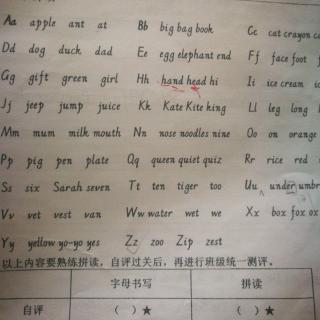 Aa apple ant at Bb big bag book Cc cat crayon
Dd dog duck dad Ee egg elephant end Ff face foot
Gg gift green girl Hh hand head hi Ii ice cream
Jj jeep jump juice Kk Kate Kite king Ll leg long
Mm mum milk mouth Nn nose noodles nine Oo on orange
Pp pig pen plate Qq queen quiet quiz Rr rice red
Ss six Sarah seven Tt ten tiger too Uu under
Vv vet vest van Ww water wet we Xx box fox
Yy yellow yo-yo yes Zz zoo Zip zest
以上内容要熟练拼读，自评过关后，再进行班级统一测评。
字母书写 拼读
自评 （ ）★ （ ）★